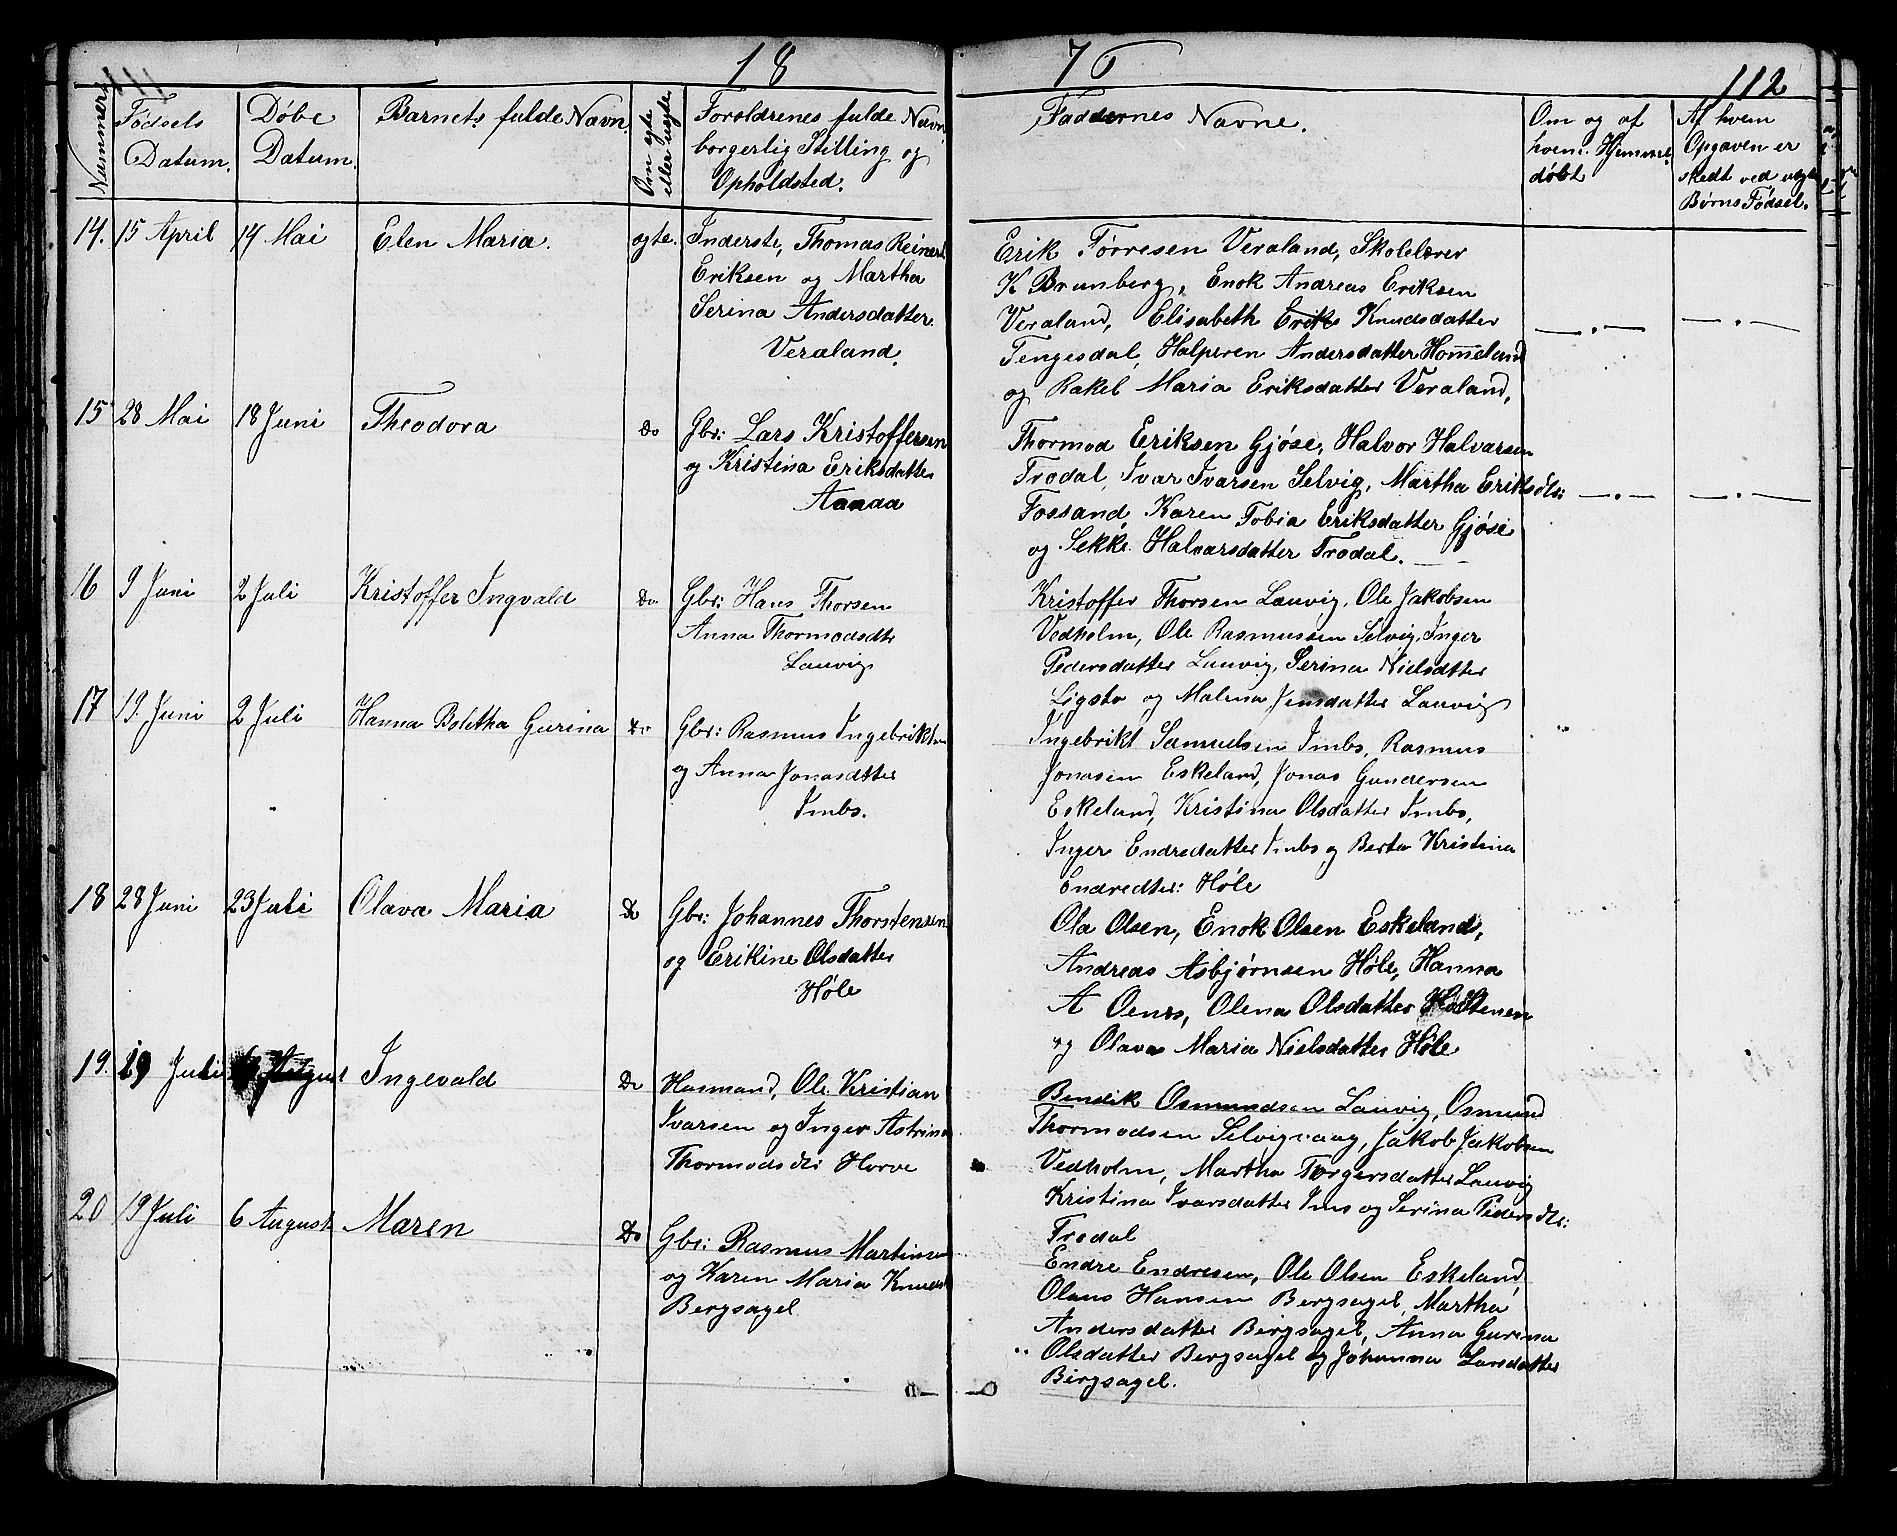 18 76
112
Nummer
Fødsels Datum.
Døbe Datum.
Barnets fulde Navn.
Om egte eller uegte
Foreldrenes fulde Navn
borgerlig Stilling og
Opholdsted.
Faddernes Navne.
Om og af
hvem Hjemme
døbt
Af hvem
Opgaven er
skedt ved uegte
Børns Fødsel.
14. 15 April 14 Mai Elen Maria. egte. Inderste, Thomas Reinert
Eriksen og Martha
Serina Andersdatter
Veraland.
Erik Tørresen Veraland, Skolelærer
K Brunberg, Enok Andreas Eriksen
Veraland, Elisabeth Eriks Knudsdatter
Tengesdal, Halperen Andersdatter Hommeland
og Rakel Maria Eriksdatter Veraland,
15 28 Mai 18 Juni Theodora do Gbr: Lars Kristoffersen
og Kristina Eriksdatter
Aanaa
Thormod Eriksen Gjøse, Halvor Halvarsen
Trodal, Ivar Ivarsen Selvig, Martha Eriksdtr:
Fossand, Karen Tobia Eriksdatter Gjøse
og Sekke Halvarsdatter Trodal.
16 9 Juni 2 Juli Kristoffer Ingvald do Gbr: Hans Thorsen
Anna Thormodsdtr
Lauvig
Kristoffer Thorsen Lauvig, Ole Jakobsen
Vedholm, Ole Rasmussen Selvig, Inger
Pedersdatter Lauvig, Serina Nielsdtter
Ligstø og Malena Jensdatter Lauvig
17 19. Juni 2 Juli Hanna Bolitha Gurina do Gbr: Rasmus Ingebriktsen
og Anna Jonasdtter
Imbs.
Ingebrikt Samuelsen Imbs, Rasmus
Jonasen Eskeland, Jonas Gundersen
Eskeland, Kristina Olsdatter Imbs,
Inger Endredatter Imbs og Berta Kristina
Endredter: Høle
18 28 Juni 23 Juli Olava Maria do Gbr: Johannes Thorstensen
og Erikine Olsdatter
Høle
Ola Olsen, Enok Olsen Eskeland,
Andreas Asbjørnsen Høle, Hanna
A Oenes, Olena Olsdatter
og Olava Maria Nielsdatter Høle
19. 19 Juli 6 August Ingevald Do Husmand, Ole Kristian
Ivarsen og Inger Astrina
Thormodsdtr Horve
Bendik Osmundsen Lauvig, Osmund
Thormodsen Selvigvaag, Jakob Jakobsen
Vedholm, Martha Torgersdatter Lauvig
Kristina Ivarsdatter Ims og Serina Pedersdtr:
Trodal
20 19 Juli 6 August Maren Do Gbr: Rasmus Martinsen
og Karen Maria Knuds
Bergsagel
Endre Endresen, Ole Olsen Eskeland,
Olaus Hansen Bergsagel, Martha
Andersdatter Bergsagel, Anna Gurina
Olsdatter Bergsagel og Johanna Larsdatter
Bergsagel.